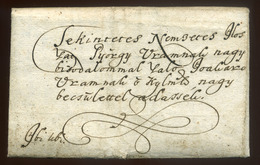 Tekintetes Nemzetes
Vay György Uramnak nagy
bizodalommal való Jóakaró
Uramnak ő Kglmek nagy
becsülettel adassék.
Ibi ubi